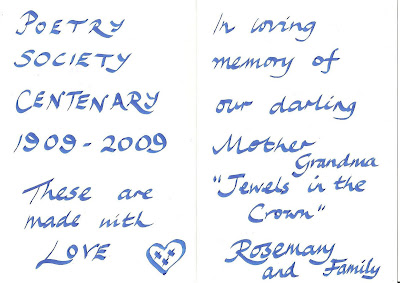 POETRY
SOCIETY
CENTENARY
1909-2009
These are
made with
LOVE
In loving
memory of
our darling
Mother
Grandma
"Jewels in the
Crown"
Rosemary
and Family